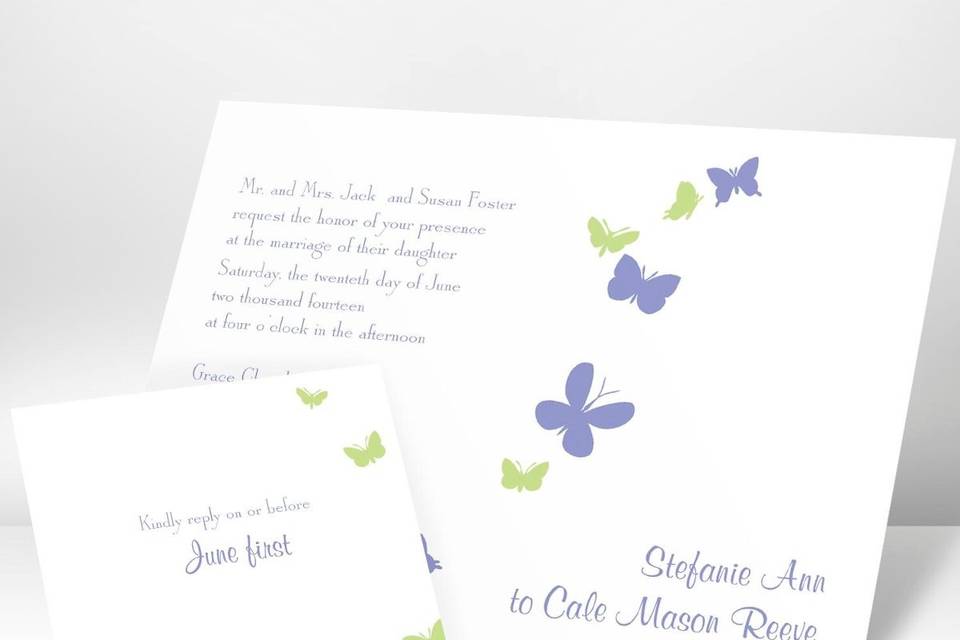 Mr. and Mrs. Jack and Susan Foster
request the honor of your presence
at the marriage of their daughter
Saturday, the twenteth day of June
two thousand fourteen
at four o'clock in the afternoon
Grace
Stefanie Ann
to Cale Mason Reeve
Kindly reply on or before
June first